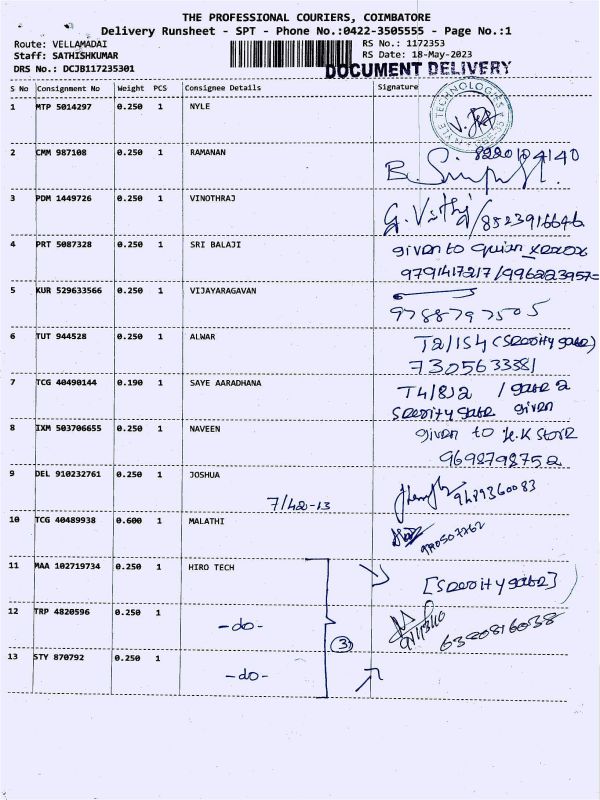 THE PROFESSIONAL COURIERS, COIMBATORE
Delivery Runsheet - SPT - Phone No.:0422-3505555 - Page No.:1
Route: VELLAMADAI RS No.: 1172353
Staff: SATHISHKUMAR RS Date: 18-May-2023
DRS No.: DCJB117235301 DOCUMENT DELIVERY
S No Consignment No Weight PCS Consignee Details Signature
1 MTP 5014297 0.250 1 NYLE
NYLE TECHNOLOGIES
2 CMM 987108 0.250 1 RAMANAN 8220104140
3 PDM 1449726 0.250 1 VINOTHRAJ /8523916646
4 PRT 5087328 0.250 1 SRI BALAJI given to xerox
9791417217/996223957
5 KUR 529633566 0.250 1 VIJAYARAGAVAN
9788797505
6 TUT 944528 0.250 1 ALWAR T2/154 (Security gate)
7305633381
7 TCG 40490144 0.190 1 SAYE AARADHANA T4/812 / gate 2
Security gate given
8 IXM 503706655 0.250 1 NAVEEN given to K.K Store
9698798752
9 DEL 910232761 0.250 1 JOSHUA 9489360083
7/42-13
10 TCG 40489938 0.600 1 MALATHI
11 MAA 102719734 0.250 1 HIRO TECH [Security gate]
12 TRP 4820596 0.250 1 -do- 6380816038
3
13 STY 870792 0.250 1 -do-